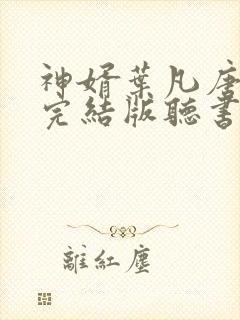 神婿葉凡唐
完結版聽書
離紅塵